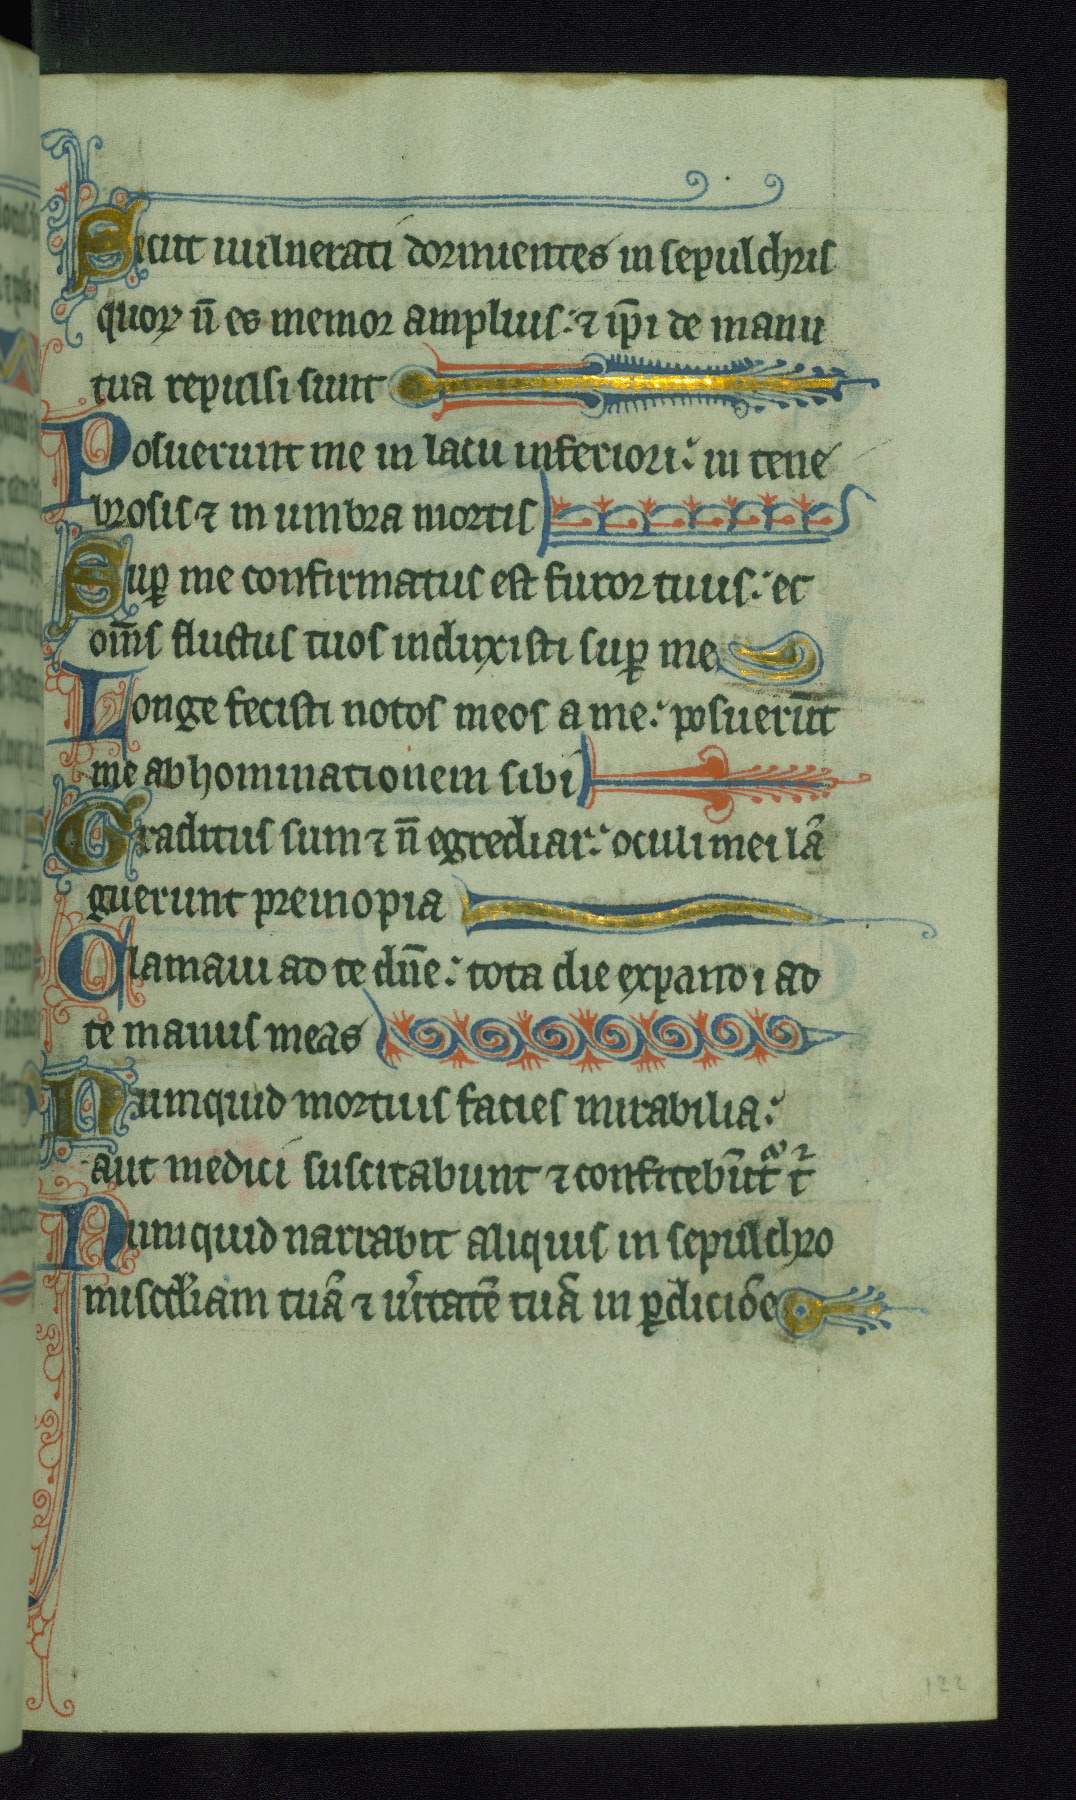 Sicut uulnerati dormientes in sepulchris
quorꝝ n̄ es memor amplius: ⁊ ip̄i de manu
tua repulsi sunt
Posuerunt me in lacu inferiori: in tene
brosis ⁊ in umbra mortis
Suꝑ me confirmatus est furor tuus: et
om̄s fluctus tuos induxisti suꝑ me
Longe fecisti notos meos a me: posuerūt
me abhominationem sibi
Traditus sum ⁊ n̄ egrediar: oculi mei lā
guerunt pre inopia
Clamaui ad te dn̄e: tota die expandi ad
te manus meas
Numquid mortuis facies mirabilia:
aut medici suscitabunt ⁊ confitebūt t
Numquid narrabit aliquis in sepulchro
mis̄cdiam tuā ⁊ u̾itatē tuā in ꝑdiciōe
122